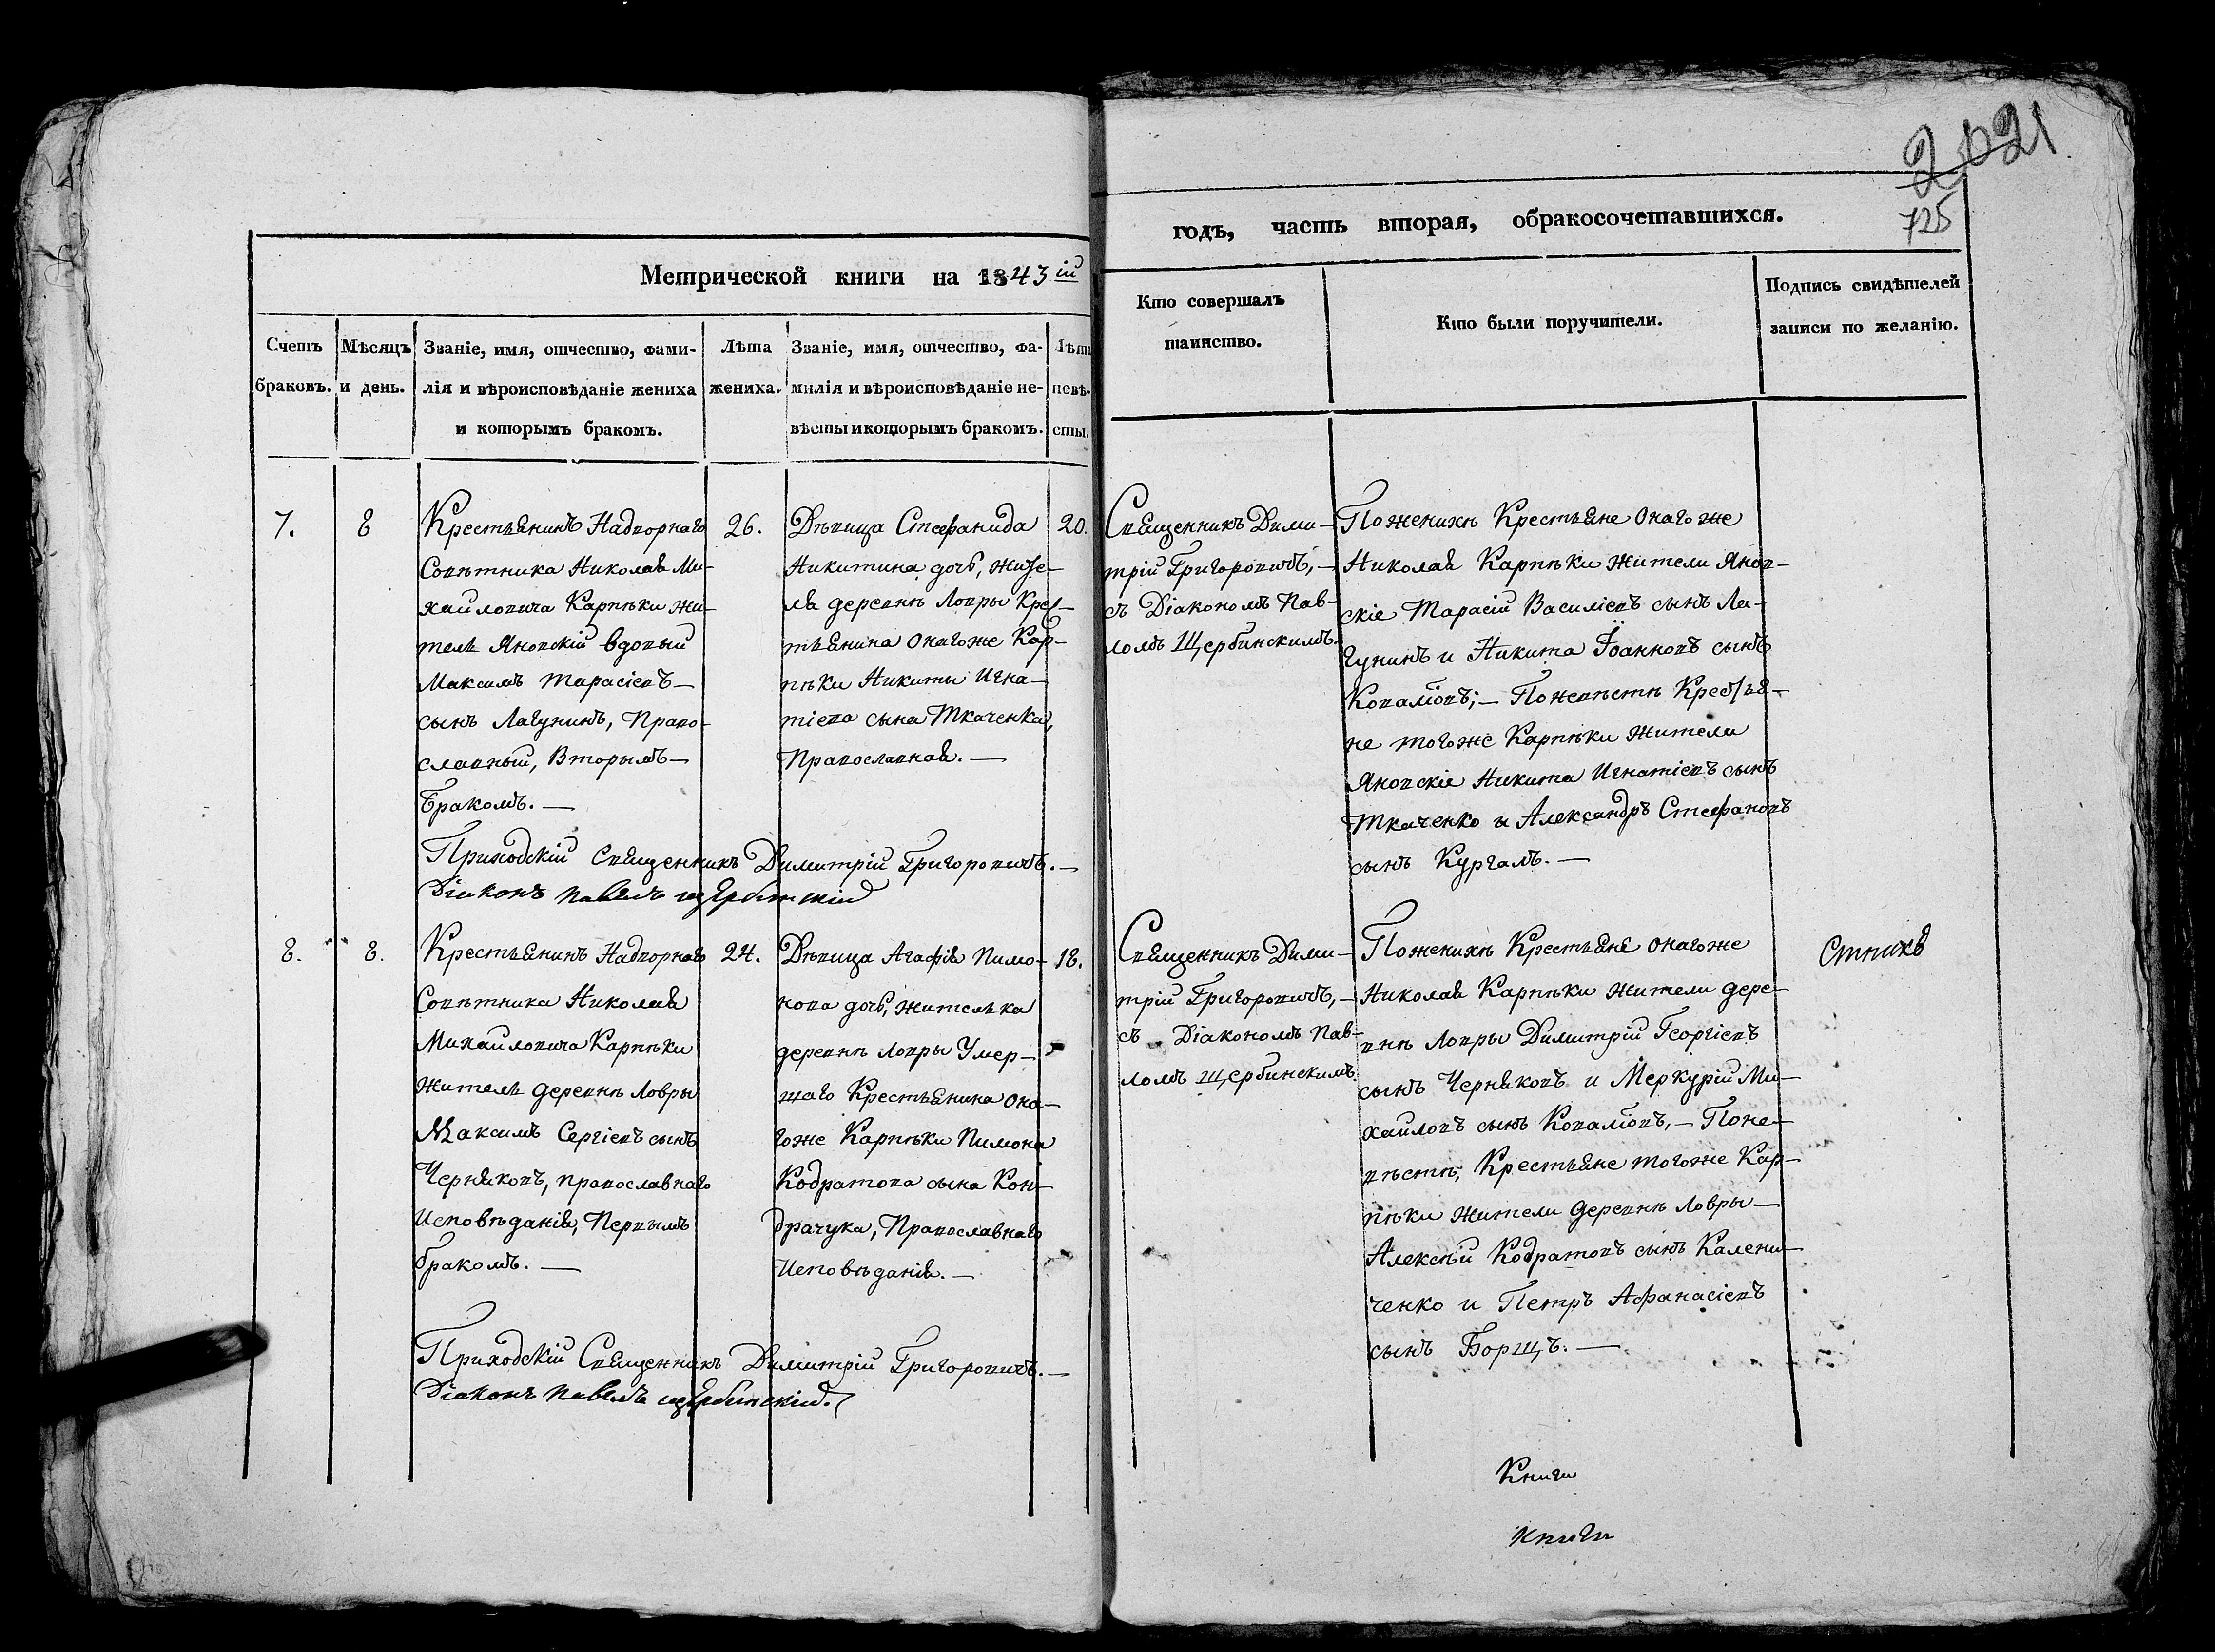 2021
725
Метрической книги на 1843ій
годъ, часть вторая, обракосочетавшихся.
Счетъ браковъ.
Мѣсяцъ и день.
Званіе, имя, отчество, фами-
лія и вѣроисповѣданіе жениха
и которымъ бракомъ.
Лѣта
жениха.
Званіе, имя, отчество, фа-
милія и вѣроисповѣданіе не-
вѣсты и которымъ бракомъ.
Лѣта
невѣ-
сты.
Кто совершалъ
таинство.
Кто были поручители.
Подпись свидѣтелей
записи по желанію.
7.
8
Крестьянинъ Надворнаго
Совѣтника Николая Ми-
хайловича Карпѣки жи-
тель Яновскій вдовый
Максимъ Тарасіевъ
сынъ Лагунинъ, Право-
славный, Вторымъ
бракомъ.
26.
Дѣвица Стефанида
Никитина дочь, жите-
ля деревнѣ Ловры Крес-
тьянина Онагоже Кар-
пѣки Никиты Игна-
тіева сына Ткаченка,
Православная.
20.
Священникъ Дими-
трій Григоровичъ,
съ Діакономъ Пав-
ломъ Щербинскимъ.
По женихѣ Крестьяне Онаго же
Николая Карпѣки жители Янов-
скіе Тарасій Василіевъ сынъ Ла-
гунинъ и Никита Іоанновъ сынъ
Коваліовъ; – По невѣстѣ Крестья-
не тогоже Карпѣки жители
Яновскіе Никита Игнатіевъ сынъ
Ткаченко и Александръ Стефановъ
сынъ Кургалъ.
Приходскій Священникъ Димитрій Григоровичъ.
Діаконъ Павелъ Щербинскій
8.
8.
Крестьянинъ Надворнаго
Совѣтника Николая
Михайловича Карпѣки
житель деревнѣ Ловры
Максимъ Сергіевъ сынъ
Черняковъ, православнаго
Исповѣданія, Первымъ
бракомъ.
24.
Дѣвица Агафія Пимо-
нова дочь, жителька
деревнѣ Ловры Умер-
шаго Крестьянина Она-
гоже Карпѣки Пимона
Кодратова сына Кон-
драчука, Православнаго
Исповѣданія.
18.
Священникъ Дими-
трій Григоровичъ,
съ Діакономъ Пав-
ломъ Щербинскимъ.
По женихѣ Крестьяне онагоже
Николая Карпѣки жители дере-
внѣ Ловры Димитрій Георгіевъ
сынъ Черняковъ и Меркурій Ми-
хайловъ сынъ Коваліовъ, – По не-
вѣстѣ, Крестьяне тогоже Кар-
пѣки жители деревнѣ Ловры
Алексѣй Кодратовъ сынъ Калени-
ченко и Петръ Афанасіевъ
сынъ Борщъ.
Приходскій Священникъ Димитрій Григоровичъ.
Діаконъ Павелъ Щербинскій.
Книги
книги